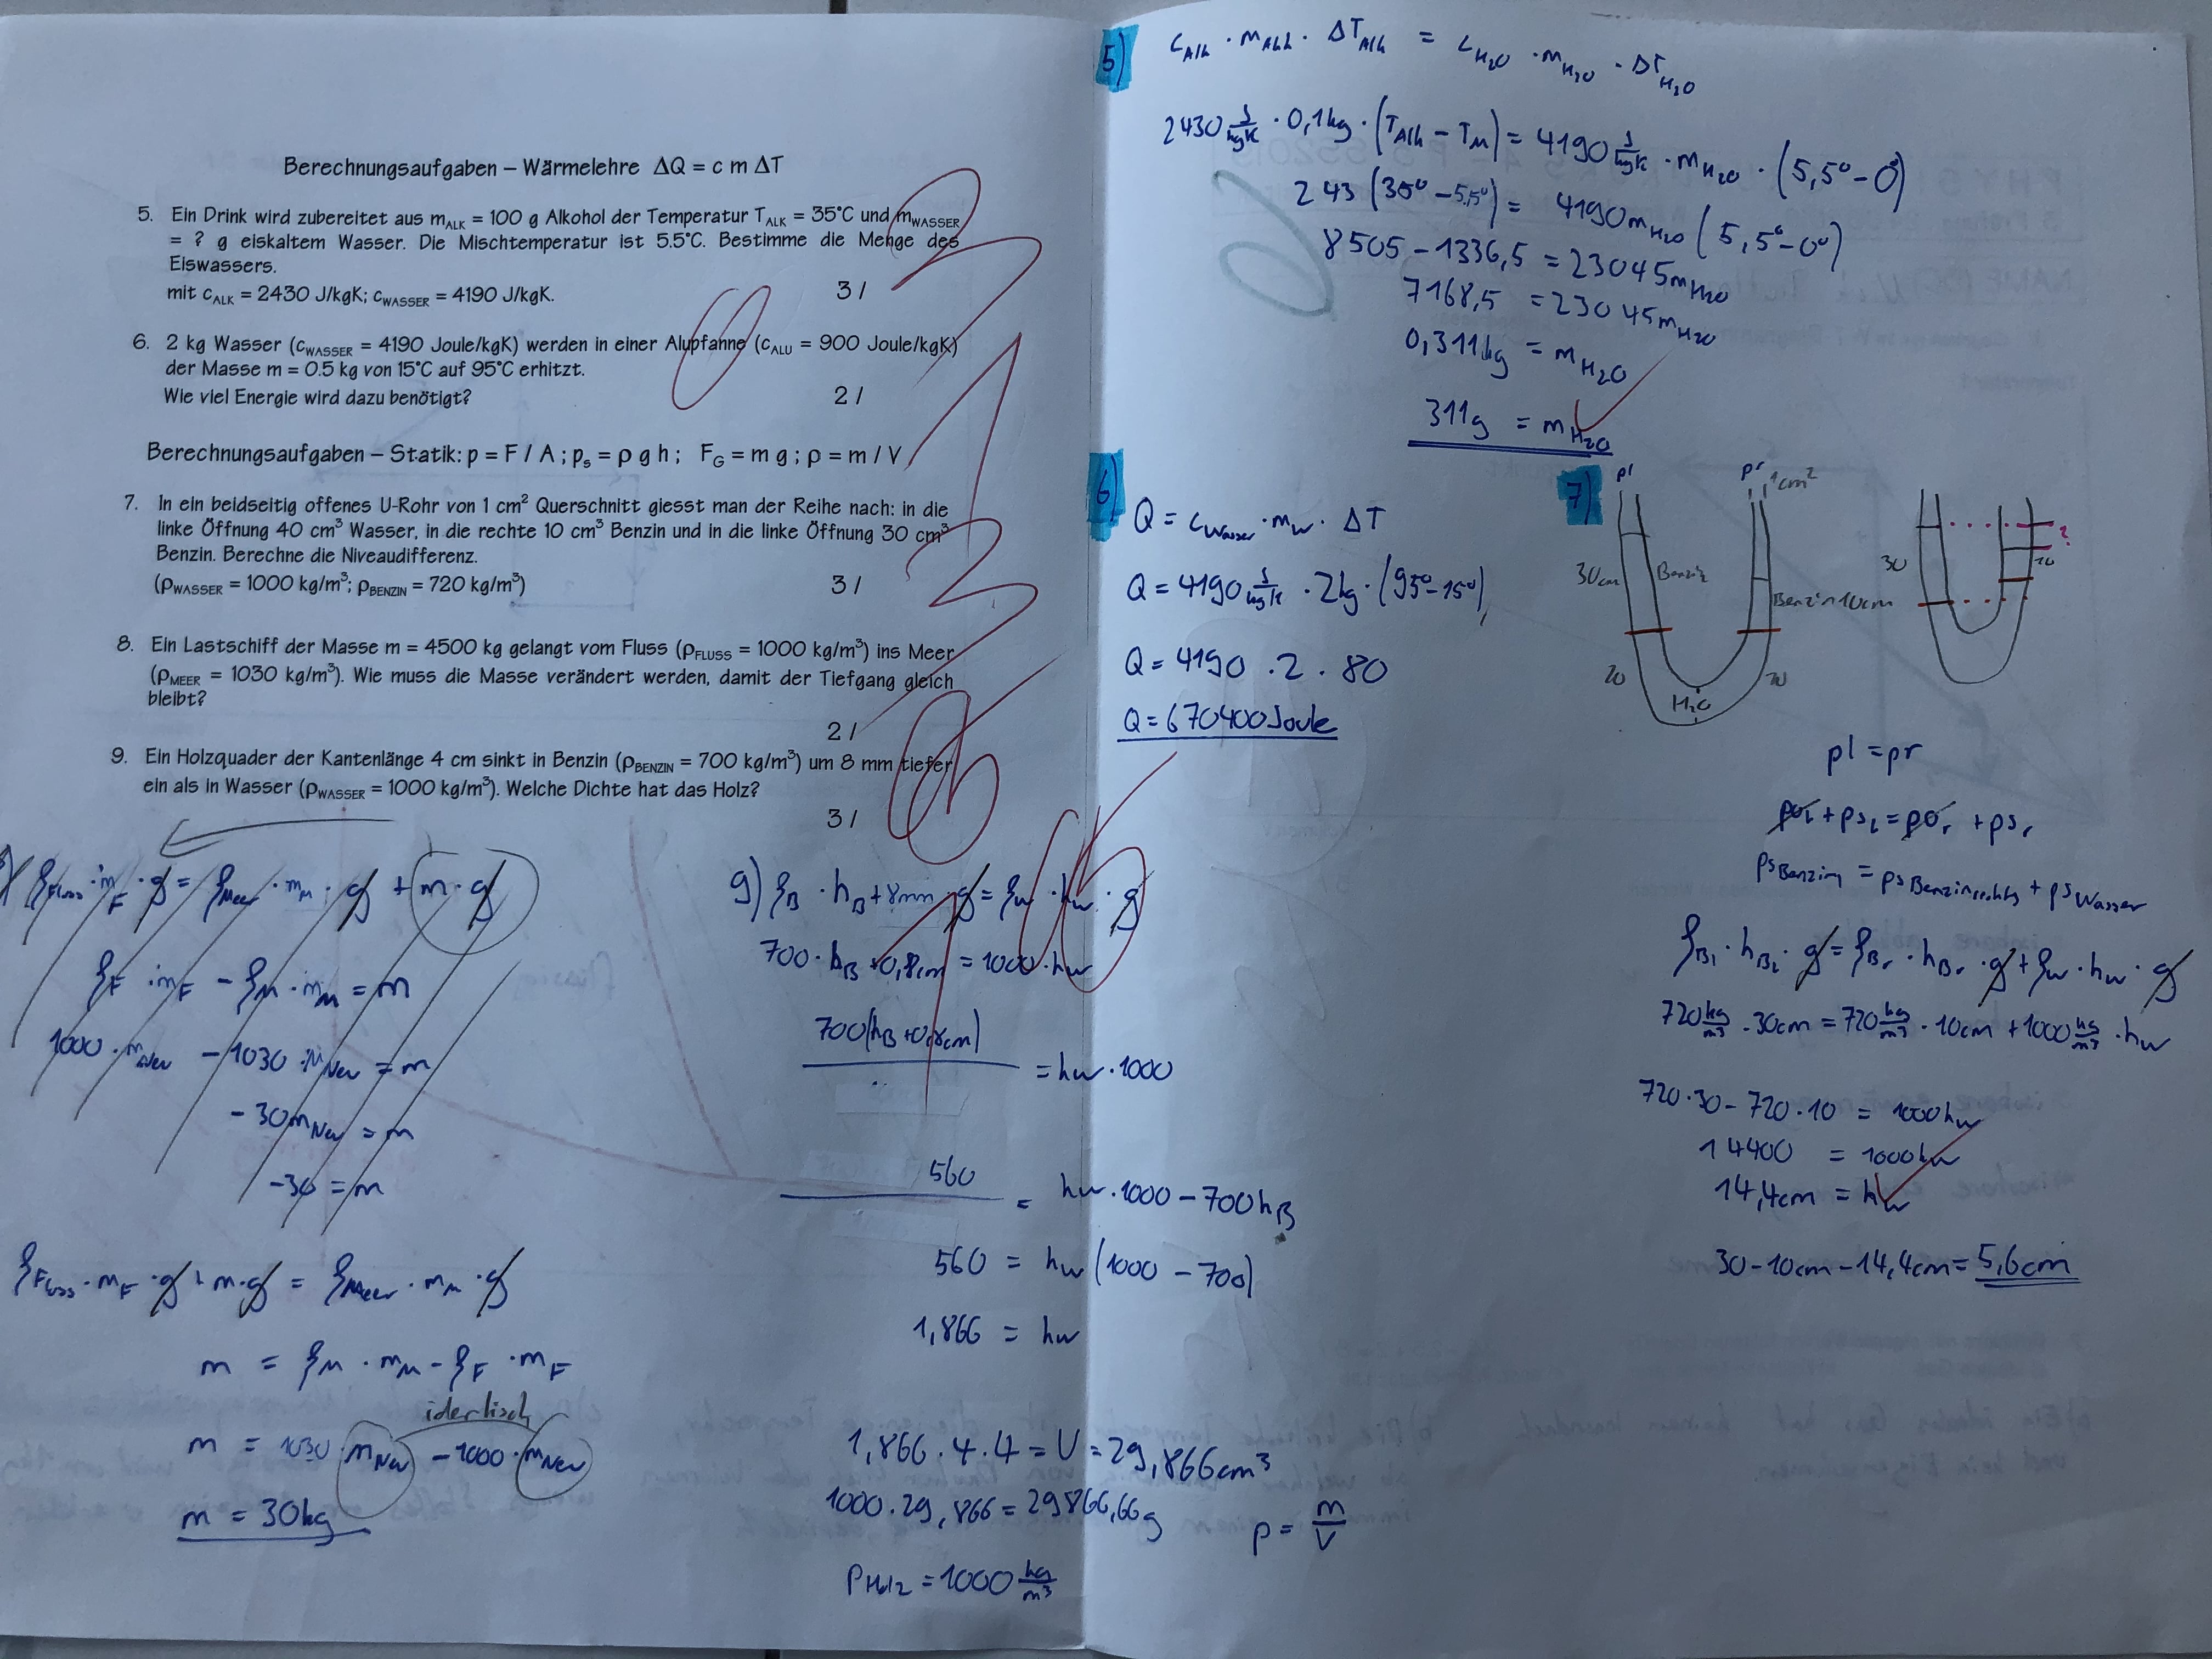 Berechnungsaufgaben – Wärmelehre ΔQ = c m ΔT
5. Ein Drink wird zubereitet aus mALK = 100 g Alkohol der Temperatur TALK = 35°C und mWASSER
= ? g eiskaltem Wasser. Die Mischtemperatur ist 5.5°C. Bestimme die Menge des
Eiswassers.
mit cALK = 2430 J/kgK; cWASSER = 4190 J/kgK. 3 /
6. 2 kg Wasser (cWASSER = 4190 Joule/kgK) werden in einer Alupfanne (cALU = 900 Joule/kgK)
der Masse m = 0.5 kg von 15°C auf 95°C erhitzt.
Wie viel Energie wird dazu benötigt? 2 /
Berechnungsaufgaben – Statik: p = F / A ; ps = ρ g h ; FG = m g ; ρ = m / V
7. In ein beidseitig offenes U-Rohr von 1 cm² Querschnitt giesst man der Reihe nach: in die
linke Öffnung 40 cm³ Wasser, in die rechte 10 cm³ Benzin und in die linke Öffnung 30 cm³
Benzin. Berechne die Niveaudifferenz.
(ρWASSER = 1000 kg/m³; ρBENZIN = 720 kg/m³) 3 /
8. Ein Lastschiff der Masse m = 4500 kg gelangt vom Fluss (ρFLUSS = 1000 kg/m³) ins Meer
(ρMEER = 1030 kg/m³). Wie muss die Masse verändert werden, damit der Tiefgang gleich
bleibt?
2 /
9. Ein Holzquader der Kantenlänge 4 cm sinkt in Benzin (ρBENZIN = 700 kg/m³) um 8 mm tiefer
ein als in Wasser (ρWASSER = 1000 kg/m³). Welche Dichte hat das Holz?
3 /
ρFluss · mF · g = ρMeer · mM · g + m · g
ρF · mF - ρM · mM = m
1000 · mNeu - 1030 · mNeu = m
-30mNeu = m
-30 = m
ρFluss · mF · g + m · g = ρMeer · mM · g
m = ρM · mM - ρF · mF
identisch
m = 1030 · mNeu - 1000 · mNeu
m = 30kg
9) ρB · hB + 8mm · g = ρW · hW · g
700 · hB + 0,8cm = 1000 · hW
700(hB + 0,8cm) = hW · 1000
560 = hW · 1000 - 700hB
560 = hW (1000 - 700)
1,866 = hW
1,866 · 4 · 4 = V = 29,866cm³
1000 · 29,866 = 29866,66g
ρ = m/V
ρHolz = 1000 kg/m³
5) cAlk · mAlk · ΔTAlk = cH2O · mH2O · ΔTH2O
2430 J/kgK · 0,1kg · (TAlk - TM) = 4190 J/kgK · mH2O · (5,5° - 0°)
243 (35° - 5,5°) = 4190mH2O (5,5° - 0°)
8505 - 1336,5 = 23045mH2O
7168,5 = 23045mH2O
0,311kg = mH2O
311g = mH2O
6) Q = cWasser · mW · ΔT
Q = 4190 J/kgK · 2kg · (95° - 15°)
Q = 4190 · 2 · 80
Q = 670400 Joule
7) pl pr 1cm²
30cm Benzin Benzin 10cm
20 H2O 20
30 10 ?
pl = pr
p0l + psl = p0r + psr
psBenzin = psBenzinrechts + psWasser
ρBl · hBl · g = ρBr · hBr · g + ρW · hW · g
720 kg/m³ · 30cm = 720 kg/m³ · 10cm + 1000 kg/m³ · hW
720·30 - 720·10 = 1000hW
14400 = 1000hW
14,4cm = hW
30 - 10cm - 14,4cm = 5,6cm